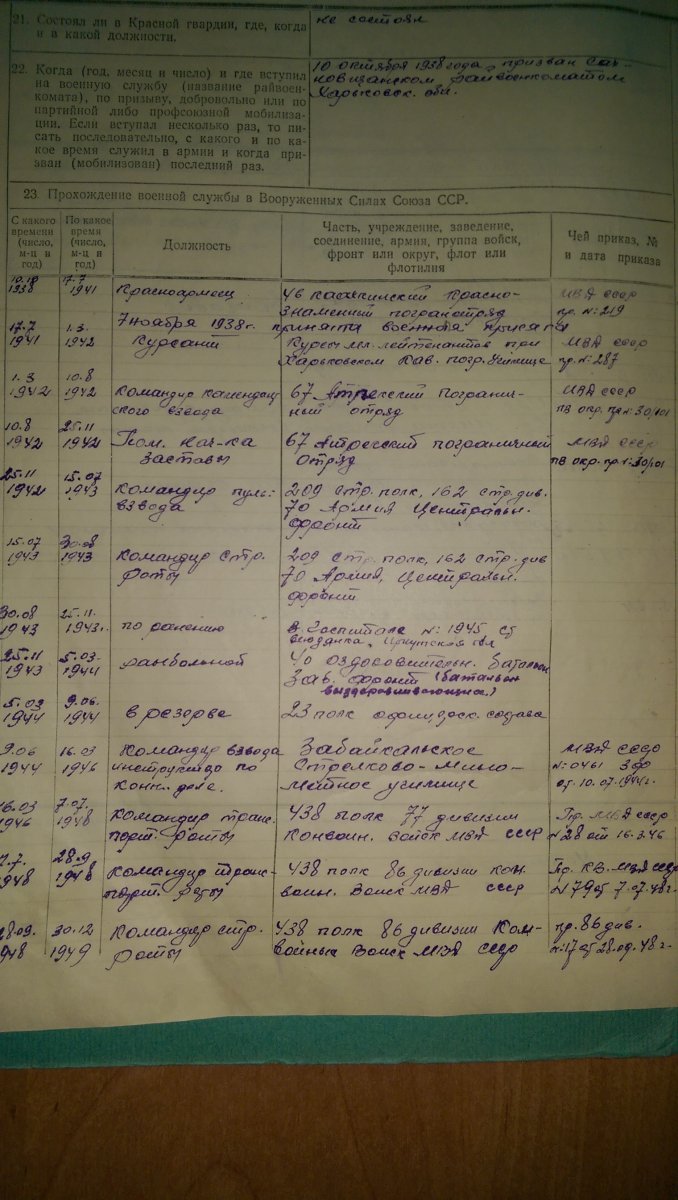 21. Состоял ли в Красной гвардии, где, когда
и в какой должности.
не состоял
22. Когда (год, месяц и число) и где вступил
на военную службу (название райвоен-
комата), по призыву, добровольно или по
партийной либо профсоюзной мобилиза-
ции. Если вступал несколько раз, то пи-
сать последовательно, с какого и по ка-
кое время служил в армии и когда при-
зван (мобилизован) последний раз.
10 октября 1938 года, призван Сах-
новщанском райвоенкоматом
Харьковск. обл.
23. Прохождение военной службы в Вооруженных Силах Союза ССР.
С какого времени (число, м-ц и год)
По какое время (число, м-ц и год)
Должность
Часть, учреждение, заведение,
соединение, армия, группа войск,
фронт или округ, флот или
флотилия
Чей приказ, №
и дата приказа
10.10 17.7
1938 1941 Красноармеец 46 Красно- МВД СССР
знаменный погранотряд пр. №: 219
7 ноября 1938 г. принята военная присяга
17.7 1.3. Курсант Курсы мл. лейтенантов при МВД СССР
1941 1942 Харьковском Кав. погр. училище пр. №: 287
1.3 10.8
1942 1942 Командир комендант- 67 погранич- МВД СССР
ского взвода ный отряд ПВ окр. пр №: 30/101
10.8 25.11
1942 1942 Пом. нач-ка 67 пограничный МВД СССР
заставы отряд ПВ окр. пр. №: 30/101
25.11 15.07
1942 1943 Командир пуль: 209 стр. полк, 162 стр. див.
взвода 70 Армия Центральн.
фронт
15.07 30.08
1943 1943 Командир стр. 209 стр. полк, 162 стр. див
роты 70 Армия, Центральн.
фронт
30.08 25.11.
1943 1943 г. по ранению в госпитале №: 1945 ст
Иркутская обл
25.11 5.03.
1943 1944 ранбольной 40 оздоровительн. батальон
Заб. фронт (батальон
выздоравливающих)
5.03 9.06.
1944 1944 в резерве 23 полк офицерск. состава
9.06 16.03 Командир взвода Забайкальское МВД СССР
1944 1946 инструктор по Стрелково-мино- №: 0461 Заб
конн. деле. метное училище от 10.07.1944 г.
16.03 7.07.
1946 1948 Командир транс- 438 полк 77 дивизии Пр. МВД СССР
порт. роты Конвойн. Войск МВД СССР №28 от 16.3.46
7.7. 28.9
1948 1948 Командир транс- 438 полк 86 дивизии кон- Пр. КВ. МВД СССР
порт. роты войн. Войск МВД СССР №79 от 7.07.48 г.
28.09. 30.12 Командир стр. 438 полк 86 дивизии Кон- пр. 86 див.
1948 1949 роты войных Войск МВД СССР №: 17 от 28.09.48 г.